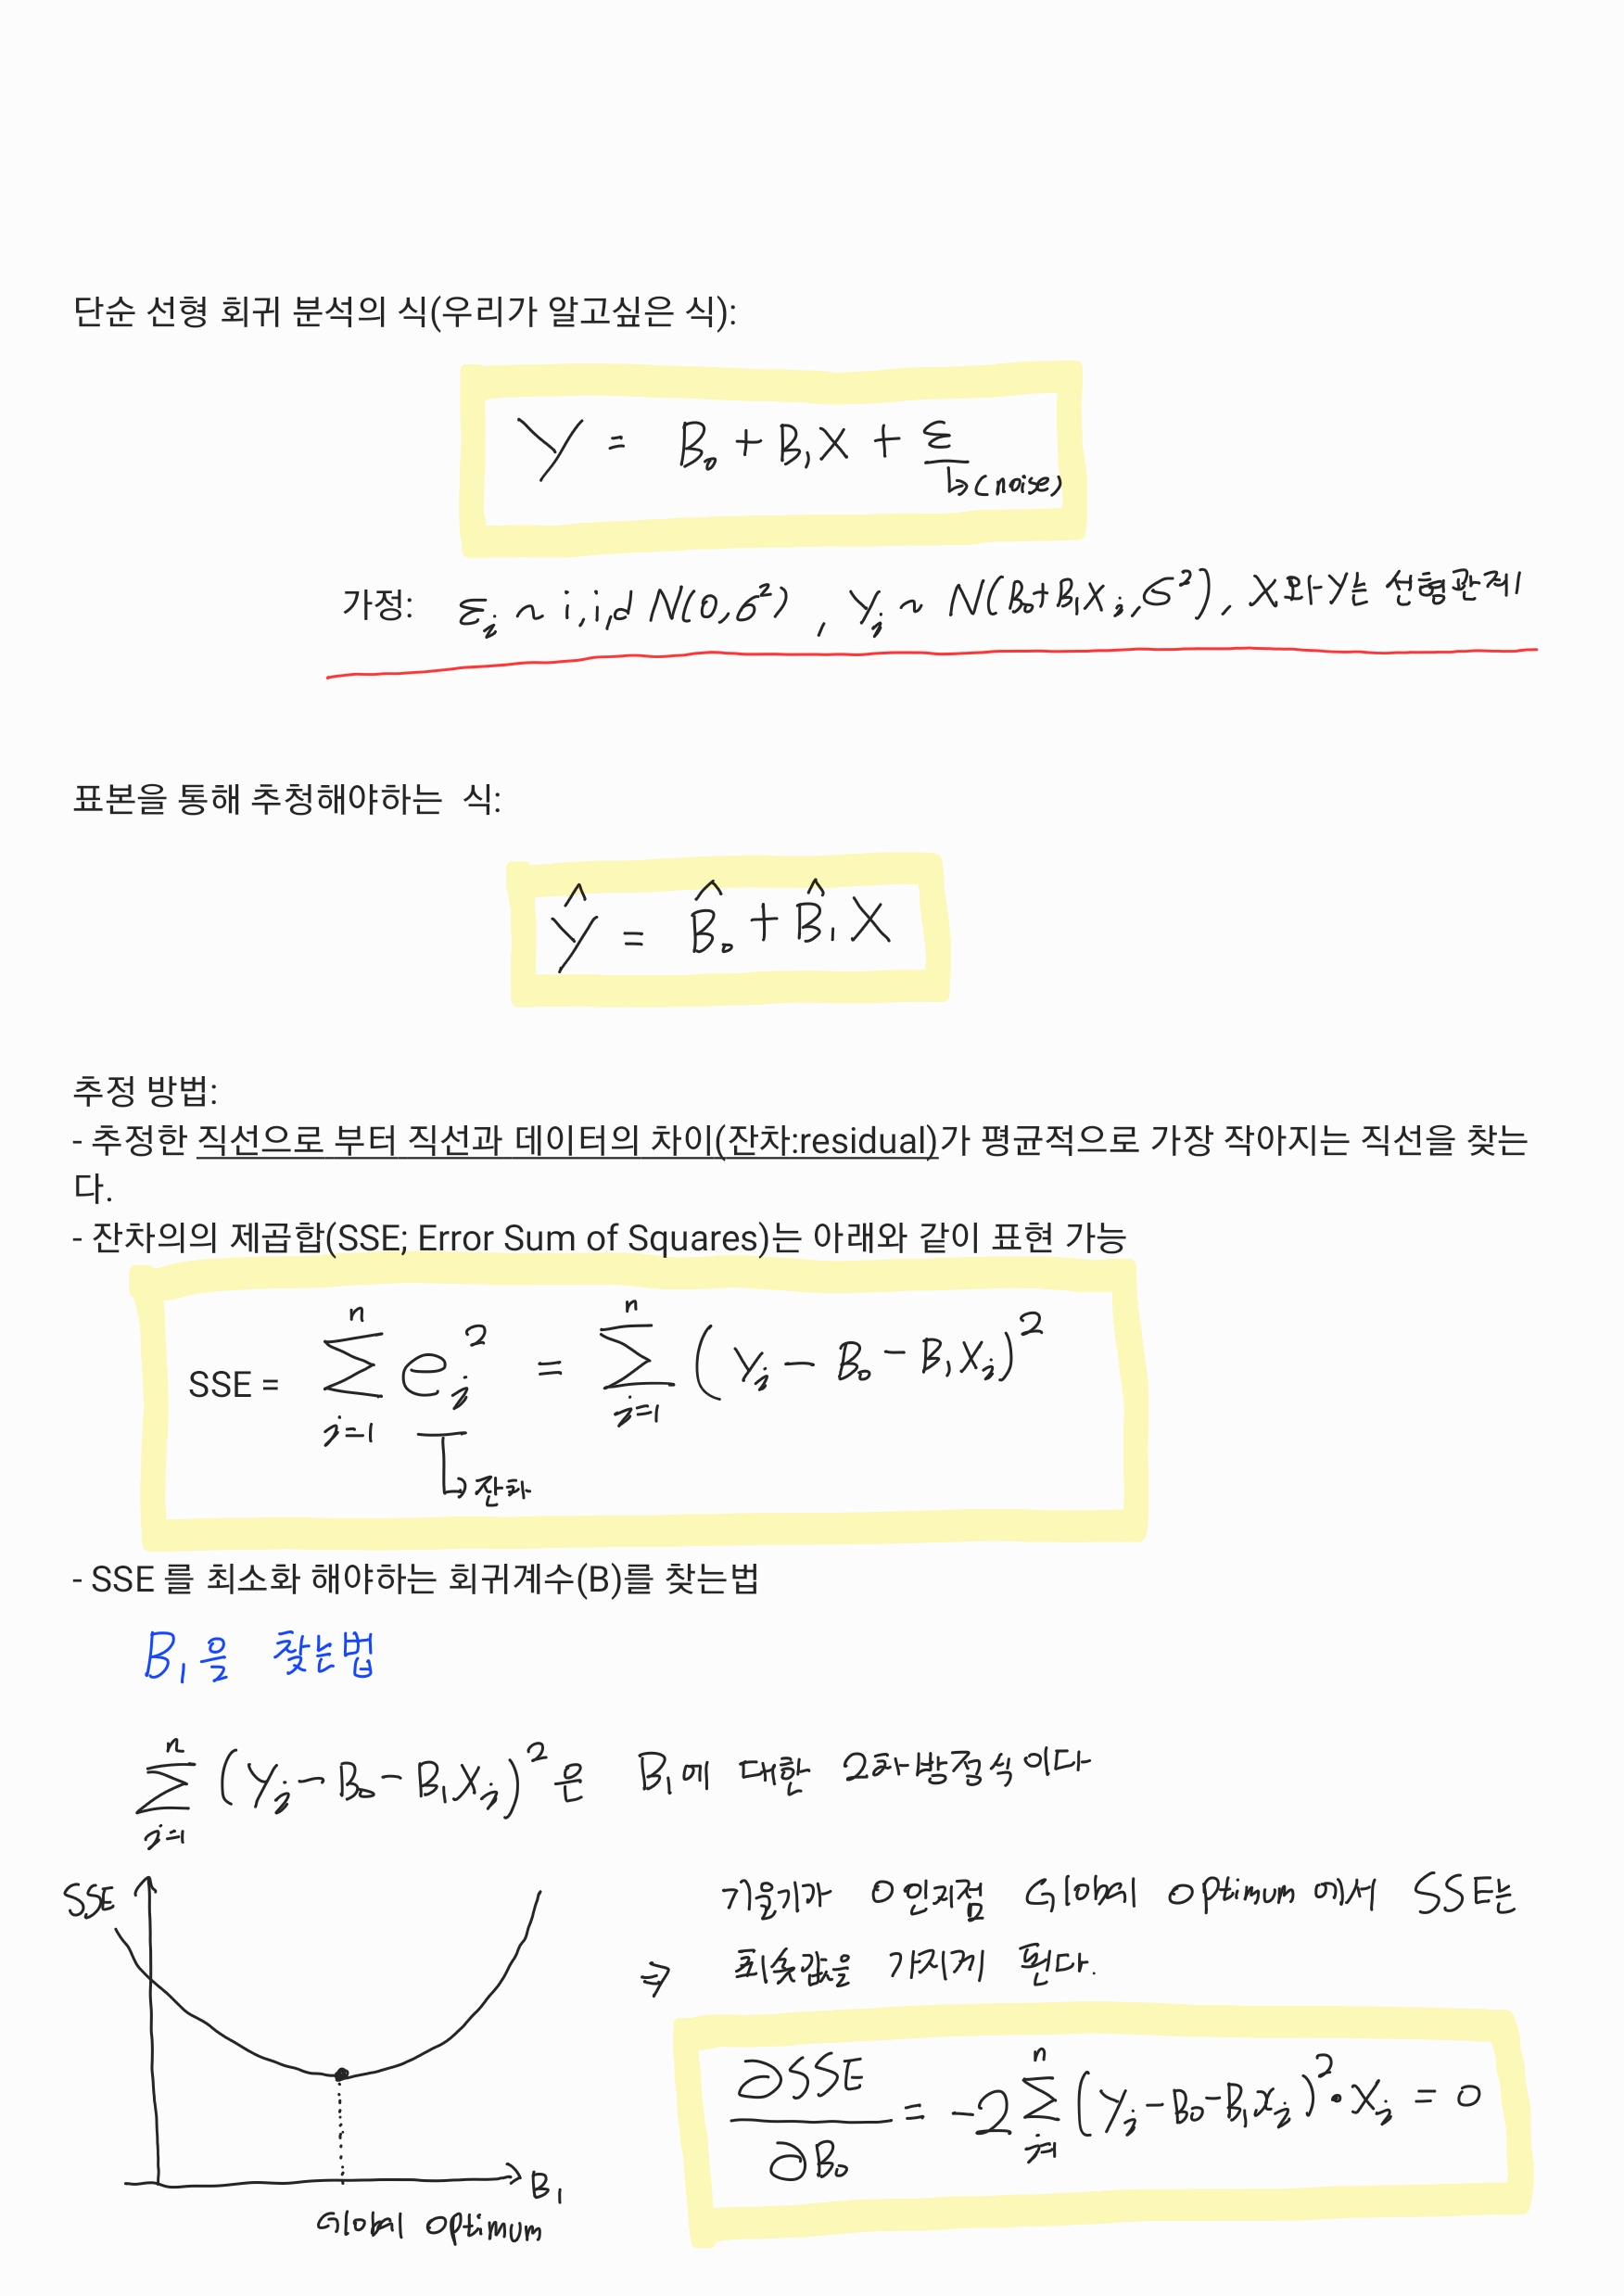 단순 선형 회귀 분석의 식(우리가 알고싶은 식):
Y = B₀ + B₁X + ε
↳(noise)
가정: εᵢ ~ i,i,d N(0,σ²), Yᵢ ~ N(B₀+B₁Xᵢ,σ²), X와 Y는 선형관계
표본을 통해 추청해야하는 식:
Ŷ = B̂₀ + B̂₁X
추정 방법:
- 추정한 직선으로 부터 직선과 데이터의 차이(잔차:residual)가 평균적으로 가장 작아지는 직선을 찾는
다.
- 잔차의의 제곱합(SSE; Error Sum of Squares)는 아래와 같이 표현 가능
SSE = ∑ⁿᵢ₌₁ eᵢ² = ∑ⁿᵢ₌₁ (Yᵢ - B₀ - B₁Xᵢ)²
↳ 잔차
- SSE 를 최소화 해야하는 회귀계수(B)를 찾는법
B₁을 찾는법
∑ⁿᵢ₌₁ (Yᵢ - B₀ - B₁Xᵢ)²은 B₁에 대한 2차방정식이다
SSE
기울기가 0인지점 Global optimum에서 SSE는
⇒ 최솟값을 가지게 된다.
∂SSE/∂B₀ = -2∑ⁿᵢ₌₁ (Yᵢ - B₀ - B₁xᵢ)²·Xᵢ = 0
B₁
Global optimum